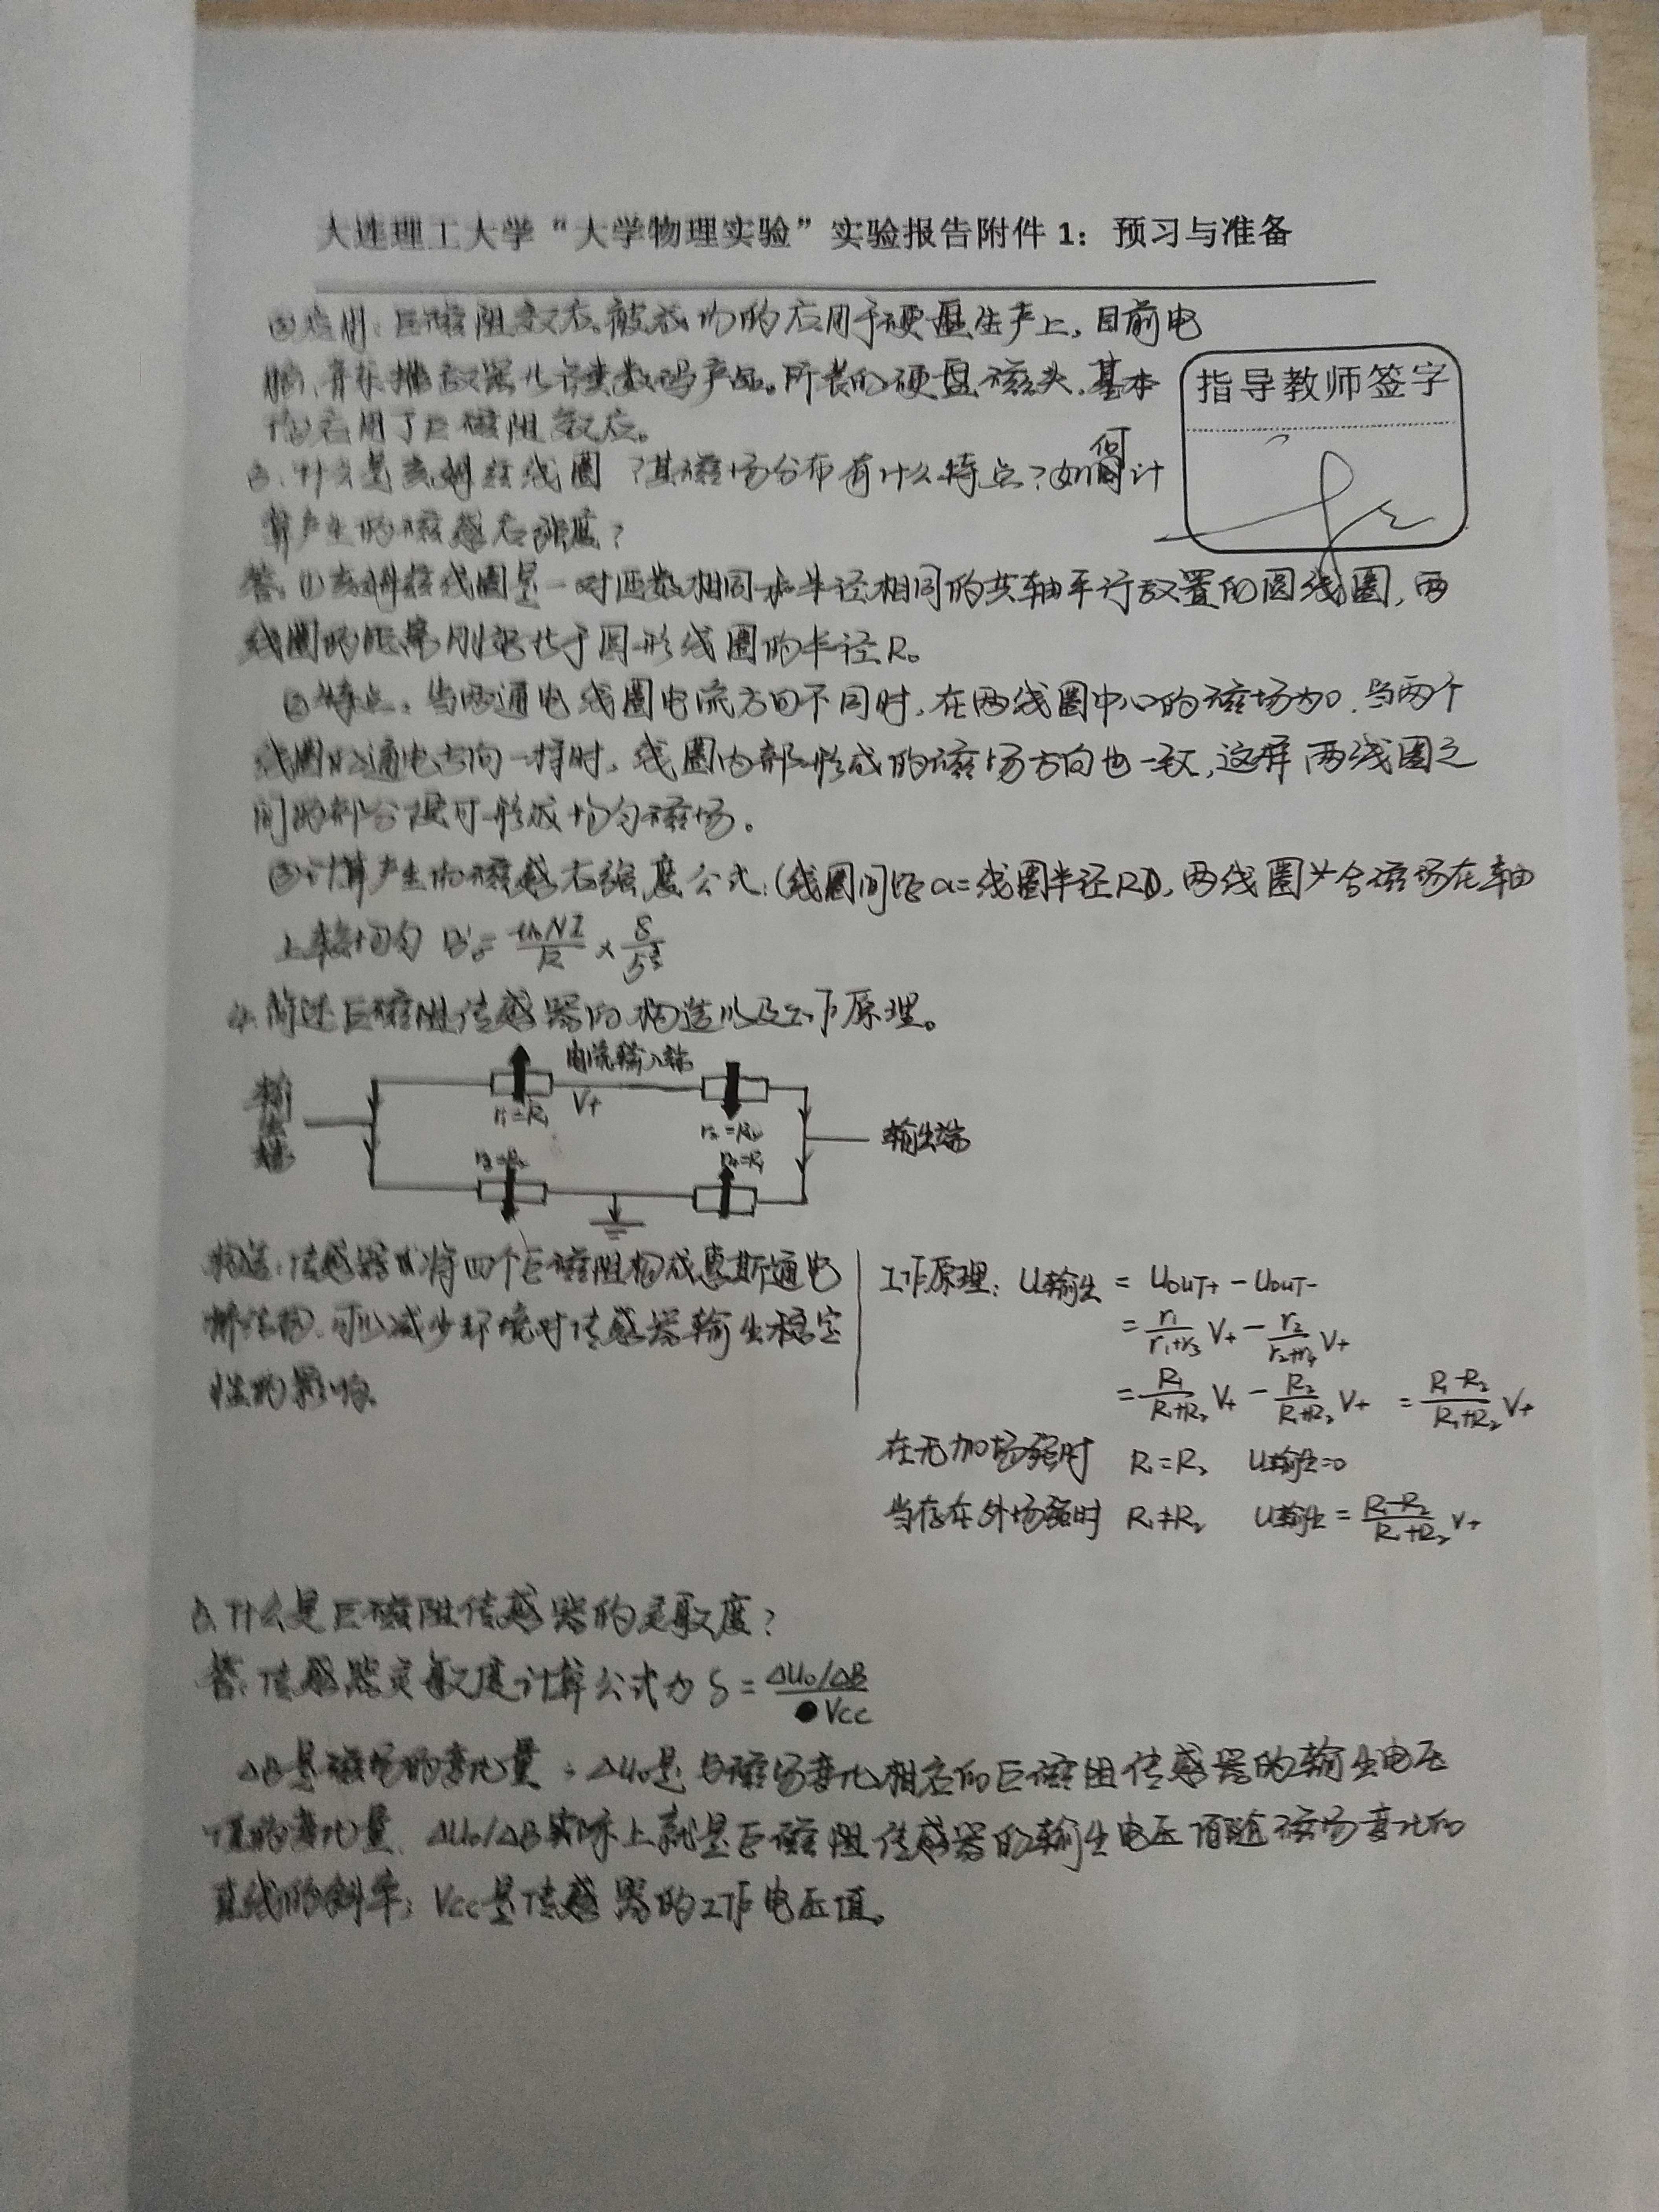 大连理工大学“大学物理实验”实验报告附件1：预习与准备
②应用：巨磁阻效应被成功的应用于硬盘生产上，目前电
脑、音乐播放器等各类数码产品。所装的硬盘磁头，基本
均应用了巨磁阻效应。
指导教师签字
3、什么是亥姆兹线圈？其磁场分布有什么特点？如何计
算产生的磁感应强度？
答：①亥姆兹线圈是一对匝数相同和半径相同的共轴平行放置的圆线圈，两
线圈的距离刚好等于圆形线圈的半径R。
②特点：当两通电线圈电流方向不同时，在两线圈中心的磁场为0，当两个
线圈的通电方向一样时，线圈内部形成的磁场方向也一致，这样两线圈之
间的部分便可形成均匀磁场。
③计算产生的磁感应强度公式：(线圈间距a=线圈半径R时)，两线圈合磁场在轴
上较均匀 B₀'= μ₀NI/R × 8/5^(3/2)
4、简述巨磁阻传感器的构造以及工作原理。
电流输入端
r₁=R₁ V+ r₂=R₂
输出端 输出端
r₃=R₂ r₄=R₁
构造：传感器将四个巨磁阻构成惠斯通电
桥结构，可以减少环境对传感器输出稳定
性的影响。
工作原理：U输出 = UOUT+ - UOUT-
= r₁/(r₁+r₃) V+ - r₂/(r₂+r₄) V+
= R₁/(R₁+R₂) V+ - R₂/(R₁+R₂) V+ = (R₁-R₂)/(R₁+R₂) V+
在无加场强时 R₁=R₂ U输出=0
当存在外场强时 R₁≠R₂ U输出 = (R₁-R₂)/(R₁+R₂) V+
5、什么是巨磁阻传感器的灵敏度？
答：传感器灵敏度计算公式为 S = (ΔU₀/ΔB)/Vcc
ΔB是磁场的变化量；ΔU₀是与磁场变化相应的巨磁阻传感器的输出电压
值的变化量，ΔU₀/ΔB实际上就是巨磁阻传感器的输出电压值随磁场变化的
直线的斜率；Vcc是传感器的工作电压值。